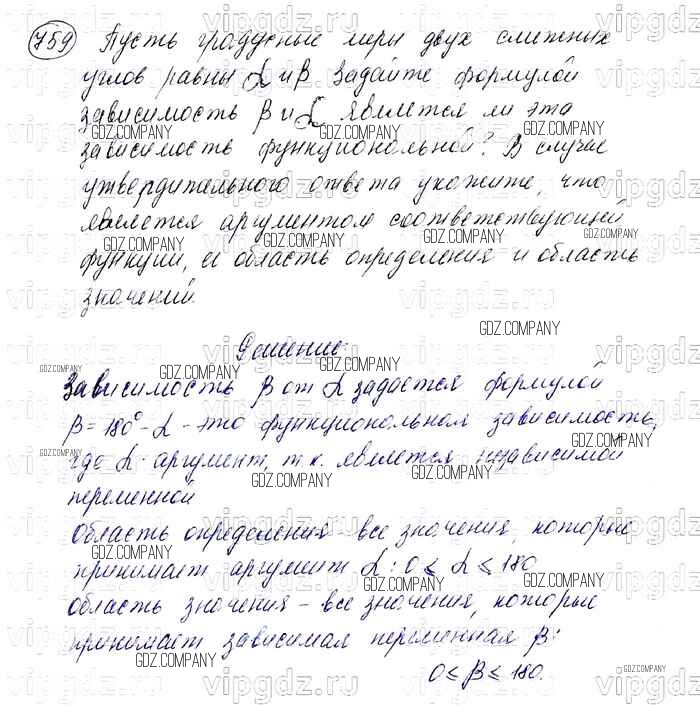 759 Пусть градусные меры двух смежных
углов равны α и β Задайте формулой
зависимость β и α является ли эта
зависимость функциональной? В случае
утвердительного ответа укажите, что
является аргументом соответствующей
функции, её область определения и область
значений.
Решение:
Зависимость β от α задаётся формулой
β = 180° - α - это функциональная зависимость,
где α - аргумент, т.к. является независимой
переменной
Область определения - все значения, которые
принимает аргумент α: 0 ⩽ α ⩽ 180
область значения - все значения, которые
принимает зависимая переменная β:
0 ⩽ β ⩽ 180.